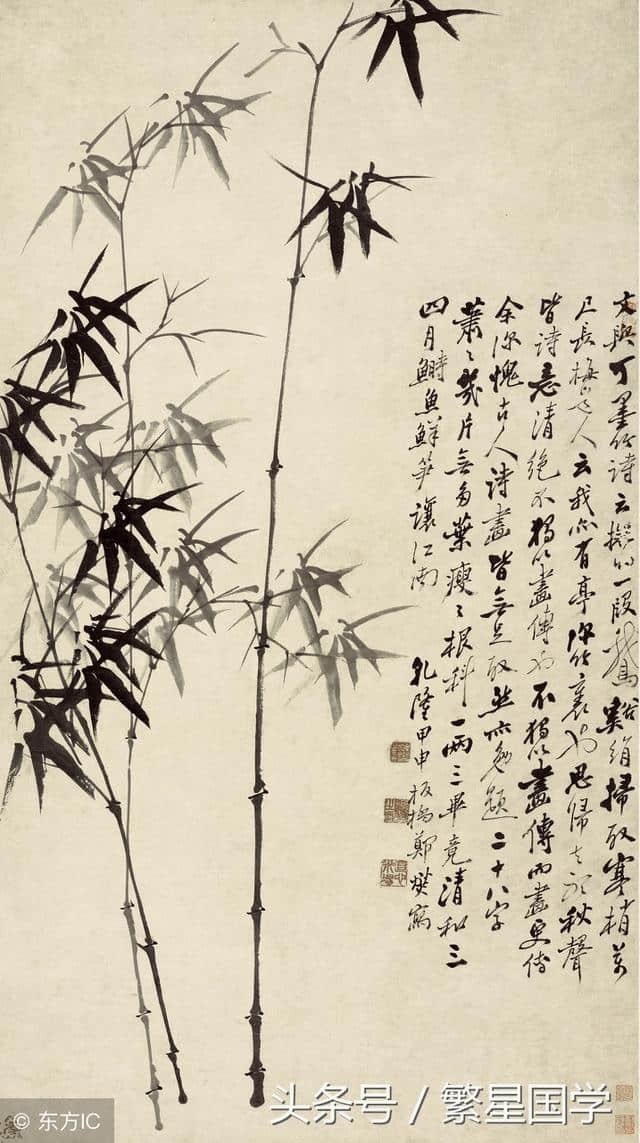 文與可墨竹詩云擬将一段鵞谿絹掃取寒梢萬
尺長梅道人云我亦有亭深竹裏也思歸去聽秋聲
皆詩意清絶不獨以畫傳也不獨以畫傳而畫更傳
余深愧古人詩畫皆無足取然亦勉題二十八字
蕭〻幾片無多葉瘦〻根科一兩三畢竟清和三
四月鰣魚鮮笋讓江南
乾隆甲申板橋鄭燮寫
© 东方IC
头条号 / 繁星国学